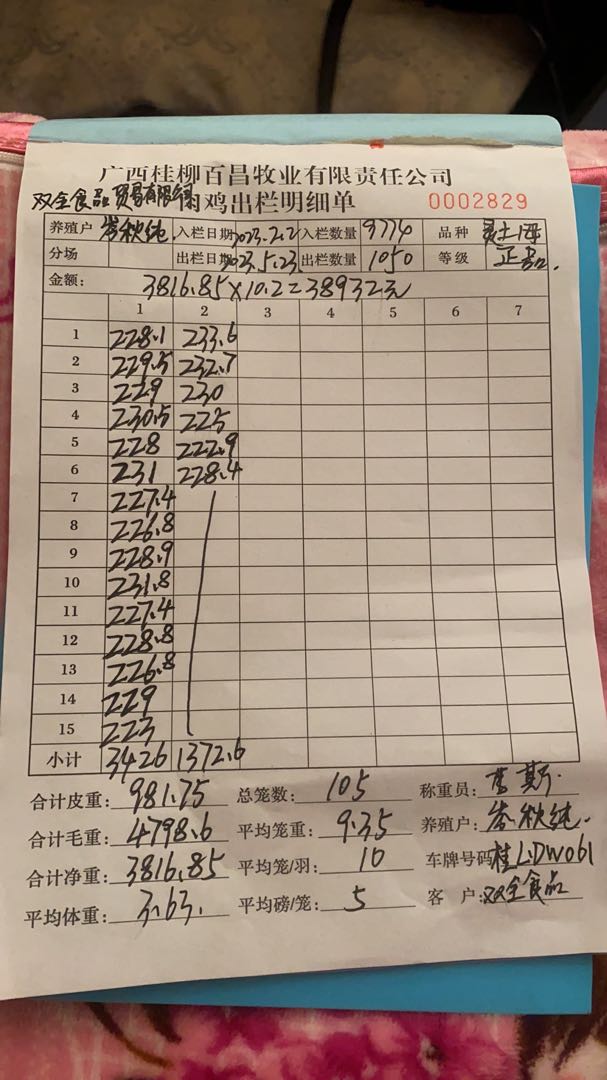 广西桂柳百昌牧业有限责任公司
双全食品贸易有限公司 肉鸡出栏明细单 0002829
养殖户 秋纯 入栏日期 2023.2.2 入栏数量 9774 品种 土1母
分场 出栏日期 2023.5.23. 出栏数量 1050 等级 正品.
金额: 3816.85×10.2=38932元
1 2 3 4 5 6 7
1 228.1 233.6
2 229.5 232.7
3 229 230
4 230.5 225
5 228 222.9
6 231 228.4
7 227.4
8 226.8
9 228.9
10 231.8
11 227.4
12 228.8
13 226.8
14 229
15 223
小计 3426 1372.6
合计皮重: 981.75 总笼数: 105 称重员: 斯
合计毛重: 4798.6 平均笼重: 9.35 养殖户: 秋纯
合计净重: 3816.85 平均笼/羽: 10 车牌号码: 桂L·DW061
平均体重: 3.63. 平均磅/笼: 5 客 户: 双全食品